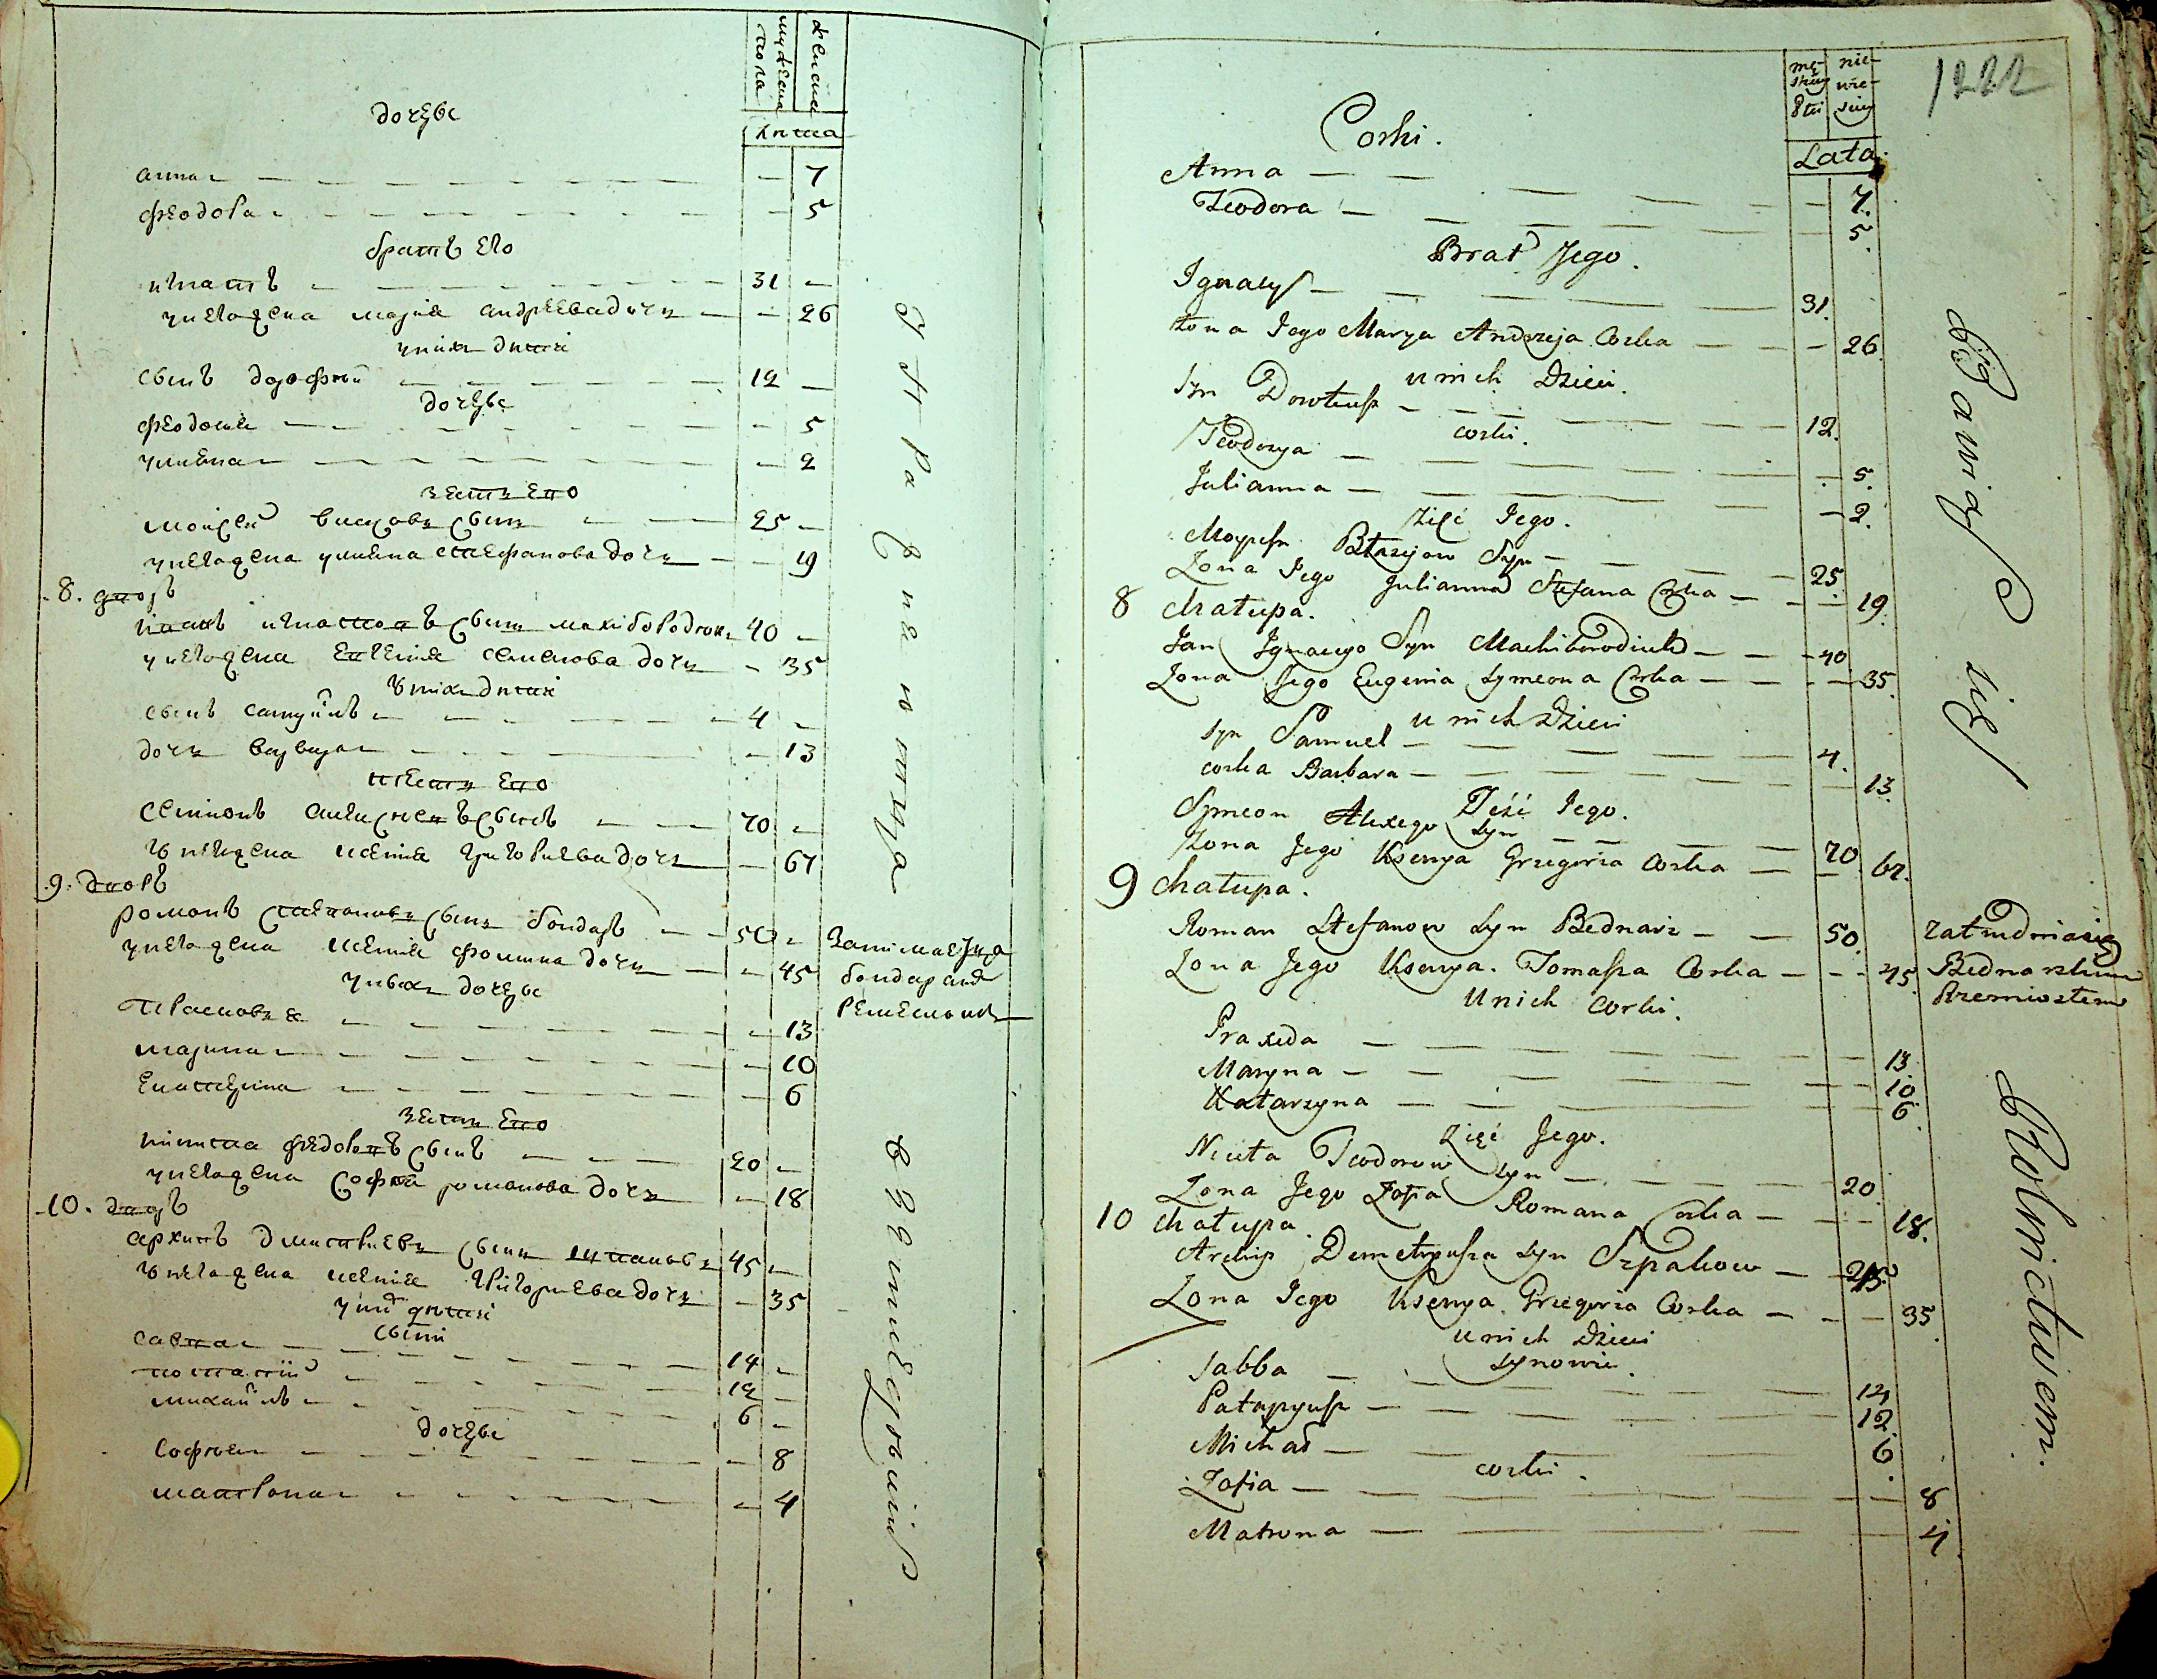 мужеска пола
женска
лита
дочери
анна 7
феодора 5
братъ его
игнатъ 31
у него жена марія андреева дочь 26
у нихъ дети
сынъ дорофей 12
дочери
феодосия 5
улияна 2
зять его
мойсей сынъ 25
у него жена улияна стефанова дочь 19
8. дворъ
иванъ игнатовъ сынъ махибородюк 40
у него жена евгения семенова дочь 35
у нихъ дети
сынъ самуйлъ 4
дочь варвара 13
тесть его
семионъ алексеевъ сынъ 70
у него жена ксения григориева дочь 67
9. дворъ
романъ степановъ сынъ бондаръ 50
занимается
у него жена ксения фомина дочь 45
бондарския
у нихъ дочери
ремесломъ
Парасковея 13
марина 10
екатерина 6
зять его
никита федоровъ сынъ 20
у него жена софия романова дочь 18
10. дворъ
архипъ дмитриевъ сынъ шпаковъ 45
у него жена ксения григориева дочь 35
у них дети
сыни
савва 14
потапий 12
михаилъ 6
дочери
софия 8
матрона 4
1222
męskiey płci
niewieściey
Lata
Corki.
Anna 7.
Teodora 5.
Brat Jego.
Ignacy 31.
żona Jego Marya Andrzeja Corka 26.
u nich Dzieci.
Syn Doroteusz 12.
corki.
Teodozya 5.
Julianna 2.
Zięć Jego.
Moyzesz Błażejow Syn 25
Zona Jego Julianna Stefana Corka 19.
8 chałupa.
Jan Ignacego Syn Machiborodiuk 40
Zona Jego Eugenia Symeona Corka 35.
u nich Dzieci
syn Samuel 4.
corka Barbara 13.
Teść Jego.
Symeon Alexego Syn 70
Zona Jego Ksenya Grzegorza Corka 67.
9 chałupa.
Roman Stefanow Syn Bednarz 50
zatrudnia się
Zona Jego Ksenya Tomasza Corka 45
Bednarskim
U nich corki.
Rzemiosłem
Praxeda 13.
Maryna 10
Katarzyna 6.
Zięć Jego.
Nikita Teodorow Syn 20.
Zona Jego Zofia Romana Corka 18.
10 chałupa.
Archip Demetryusza Syn Szpakow 45
Zona Jego Ksenya Grzegorza Corka 35.
u nich Dzieci
synowie.
Sabba 14
Patapyusz 12
Michał 6.
corki.
Zofia 8
Matrona 4
Bawią się
Rolnictwem.